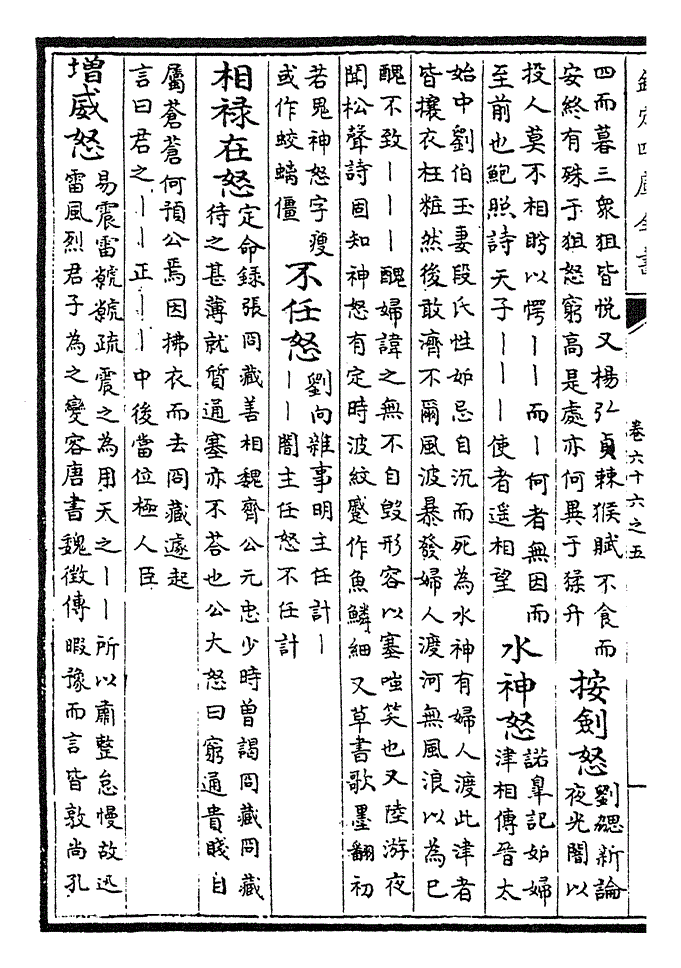 欽定四庫全書
卷六十六之五
四而暮三衆狙皆悦又楊弘貞棘猴賦不食而
安終有殊于狙怒窮高是處亦何異于猱升
按劍怒
劉勰新論
夜光闇以
投人莫不相眄以愕丨丨而丨何者無因而
至前也鮑照詩天子丨丨丨使者遥相望
水神怒
諾臯記妬婦
津相傳晉太
始中劉伯玉妻段氏性妬忌自沉而死為水神有婦人渡此津者
皆攘衣枉粧然後敢濟不爾風波暴發婦人渡河無風浪以為已
醜不致丨丨丨醜婦諱之無不自毁形容以塞嗤笑也又陸游夜
聞松聲詩固知神怒有定時波紋蹙作魚鱗細又草書歌墨翻初
若鬼神怒字瘦
或作蛟螭僵
不任怒
劉向雜事明主任計丨
丨丨闇主任怒不任計
相禄在怒
定命錄張冏藏善相魏齊公元忠少時曽謁冏藏冏藏
待之甚薄就質通塞亦不荅也公大怒曰窮通貴賤自
屬蒼蒼何預公焉因拂衣而去冏藏遽起
言曰君之丨丨正丨丨丨中後當位極人臣
增威怒
易震雷虩虩疏震之為用天之丨丨所以肅整怠慢故迅
雷風烈君子為之變容唐書魏徵傳暇豫而言皆敦尚孔